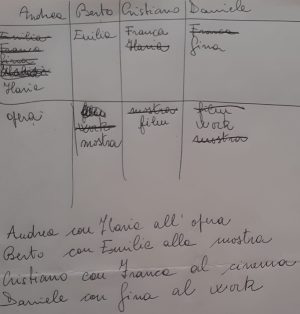 Andrea Berto Cristiano Daniele
Emilia Emilia Franca Franca
Franca Ilaria Gina
Gina
Ilaria
opera mostra film
work mostra film work
mostra mostra
Andrea con Ilaria all' opera
Berto con Emilia alla mostra
Cristiano con Franca al cinema
Daniele con Gina al work